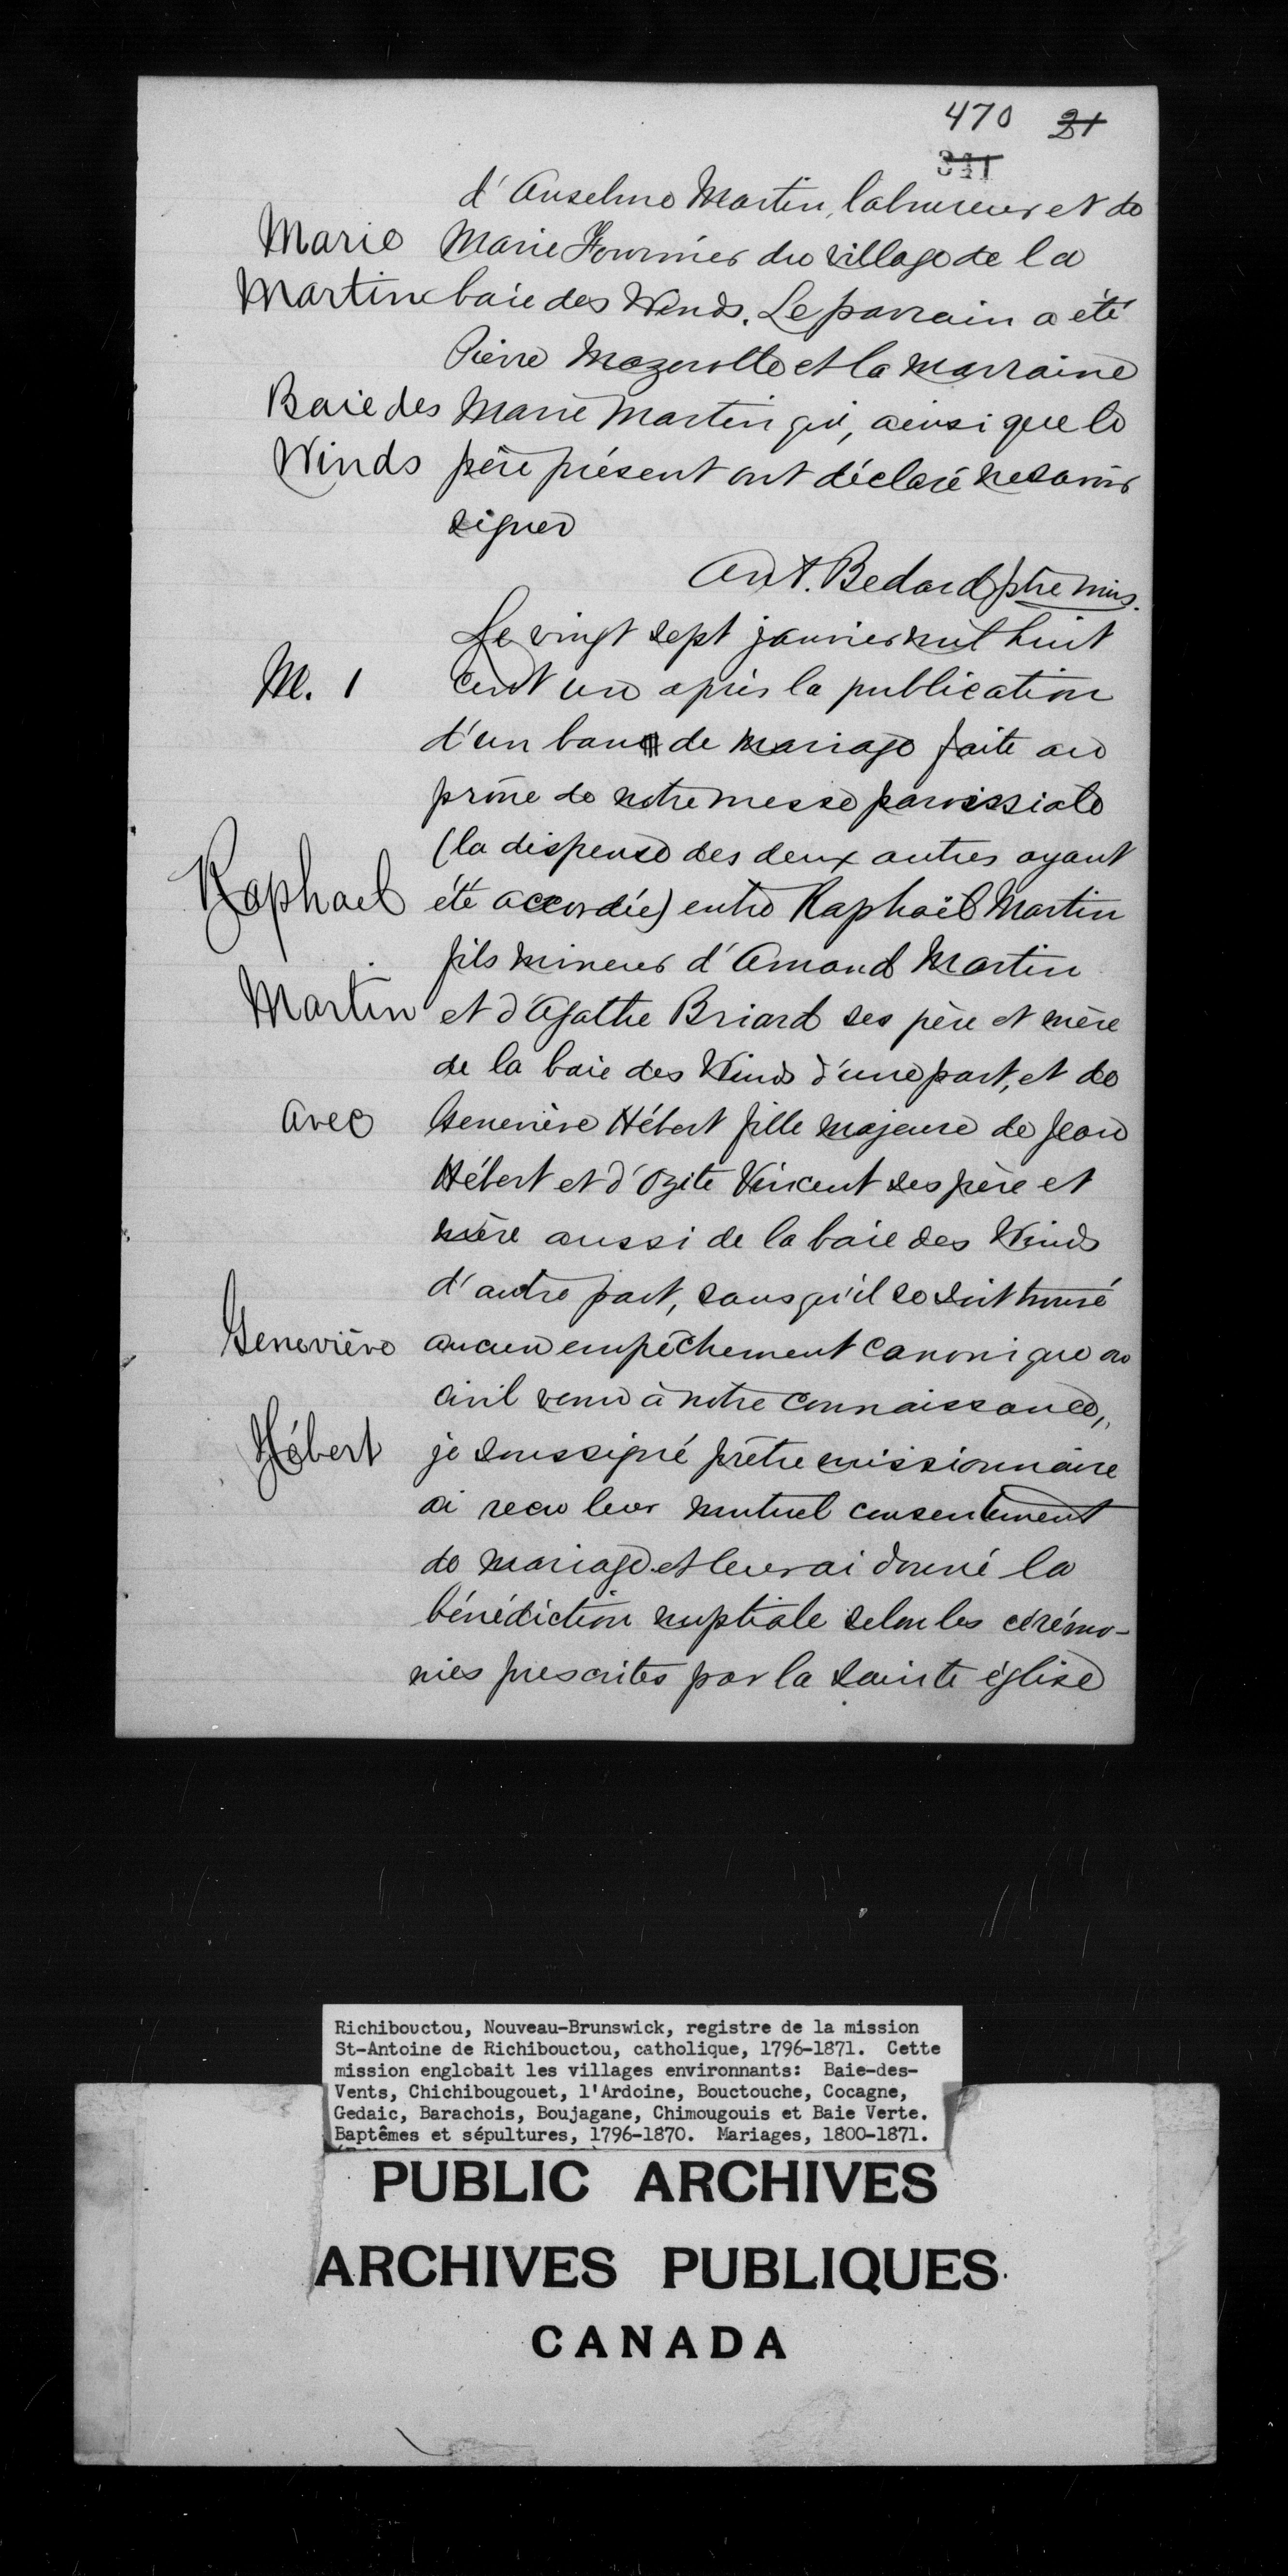 470 21
341
d'Anselme Martin, laboureur et de
Marie Marie Fournier du village de la
Martin baie des Winds. Le parrain a été
Pierre Mazerolle et la marraine
Baie des Marie Martin qui, ainsi que le
Winds père présent ont déclaré ne savoir
signer
Ant. Bedard ptre mis.
Le vingt sept janvier mil huit
M. 1 cent un après la publication
d'un ban de mariage faite au
prône de notre messe paroissiale
(la dispense des deux autres ayant
Raphael été accordée) entre Raphaël Martin
fils mineur d'Amand Martin
Martin et d'Agathe Briard ses père et mère
de la baie des Winds d'une part, et de
avec Geneviève Hébert fille majeure de Jean
Hébert et d'Ozite Vincent ses père et
mère aussi de la baie des Winds
d'autre part, sans qu'il se soit trouvé
Geneviève aucun empêchement canonique ou
civil venu à notre connaissance,
Hébert je soussigné prêtre missionnaire
ai recu leur mutuel consentement
de mariage et leur ai donné la
bénédiction nuptiale selon les cérémo-
nies prescrites par la sainte église
Richibouctou, Nouveau-Brunswick, registre de la mission
St-Antoine de Richibouctou, catholique, 1796-1871. Cette
mission englobait les villages environnants: Baie-des-
Vents, Chichibougouet, l'Ardoine, Bouctouche, Cocagne,
Gedaic, Barachois, Boujagane, Chimougouis et Baie Verte.
Baptêmes et sépultures, 1796-1870. Mariages, 1800-1871.
PUBLIC ARCHIVES
ARCHIVES PUBLIQUES
CANADA